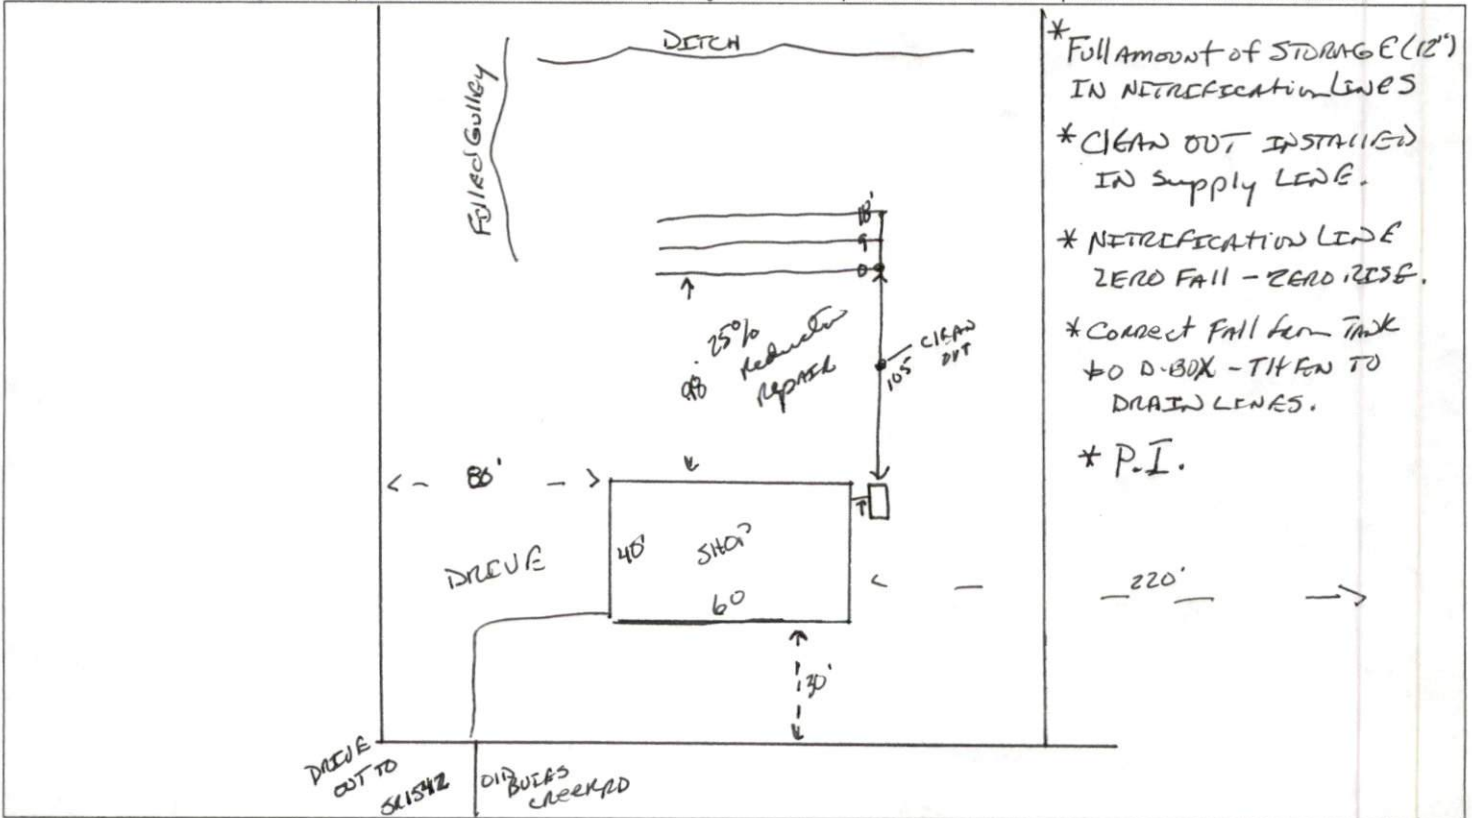 DITCH
Filled Gulley
18'
9
0
25%
Reduction
Repair
98'
CLEAN
OUT
105
80'
DRIVE
40'
SHOP
60
30'
220'
DRIVE
OUT TO
SR1542
Old
BUIES
CREEK RD
* Full AMOUNT of STORAGE (12")
IN NITRIFICATION LINES
* CLEAN OUT INSTALLED
IN Supply LINE.
* NITRIFICATION LINE
ZERO FALL - ZERO RISE.
* Correct Fall from TANK
to D-BOX - THEN TO
DRAIN LINES.
* P.I.